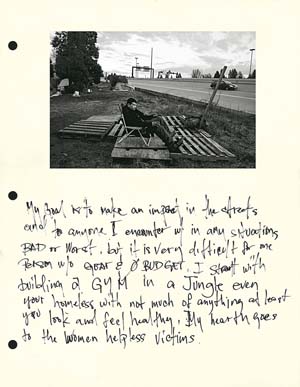 My goal is to make an impact in the streets
and to anyone I encounter w/ in any situations
BAD or Worst. but it is very difficult for one
PERSON w/o GREAT & O' BUDGET. I start with
building a GYM in a Jungle even
your homeless with not much of anything at least
you look and feel healthy. My hearth goes
to the women helpless victims.